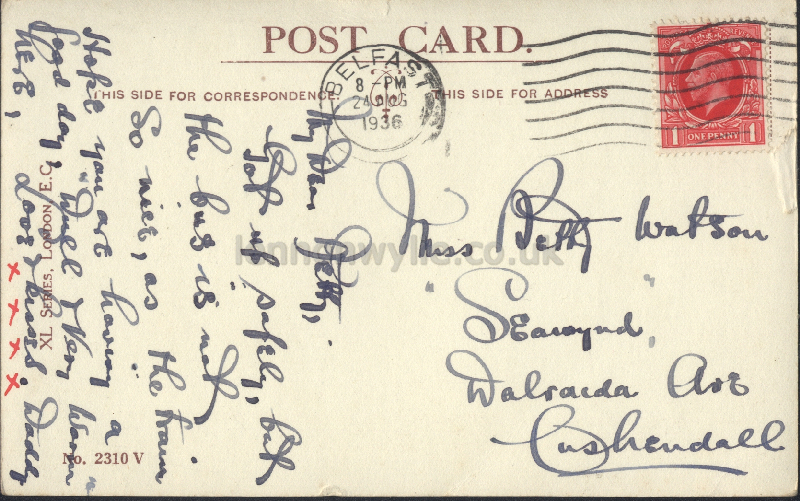 POST CARD.
THIS SIDE FOR CORRESPONDENCE.
THIS SIDE FOR ADDRESS
BELFAST
8 - PM
24 AUG
1936
ONE PENNY
1 1
My Dear Betty,
Got up safely, but
the bus is not
so nice, as the train
Hope you are having a
good day, "Dull & Very Warm"
here, Love & kisses. Daddy
x x x x
Miss Betty Watson
"Seawynd"
Dalraida Ave
Cushendall
XL SERIES, LONDON, E.C.
No. 2310 V
lennonwylie.co.uk